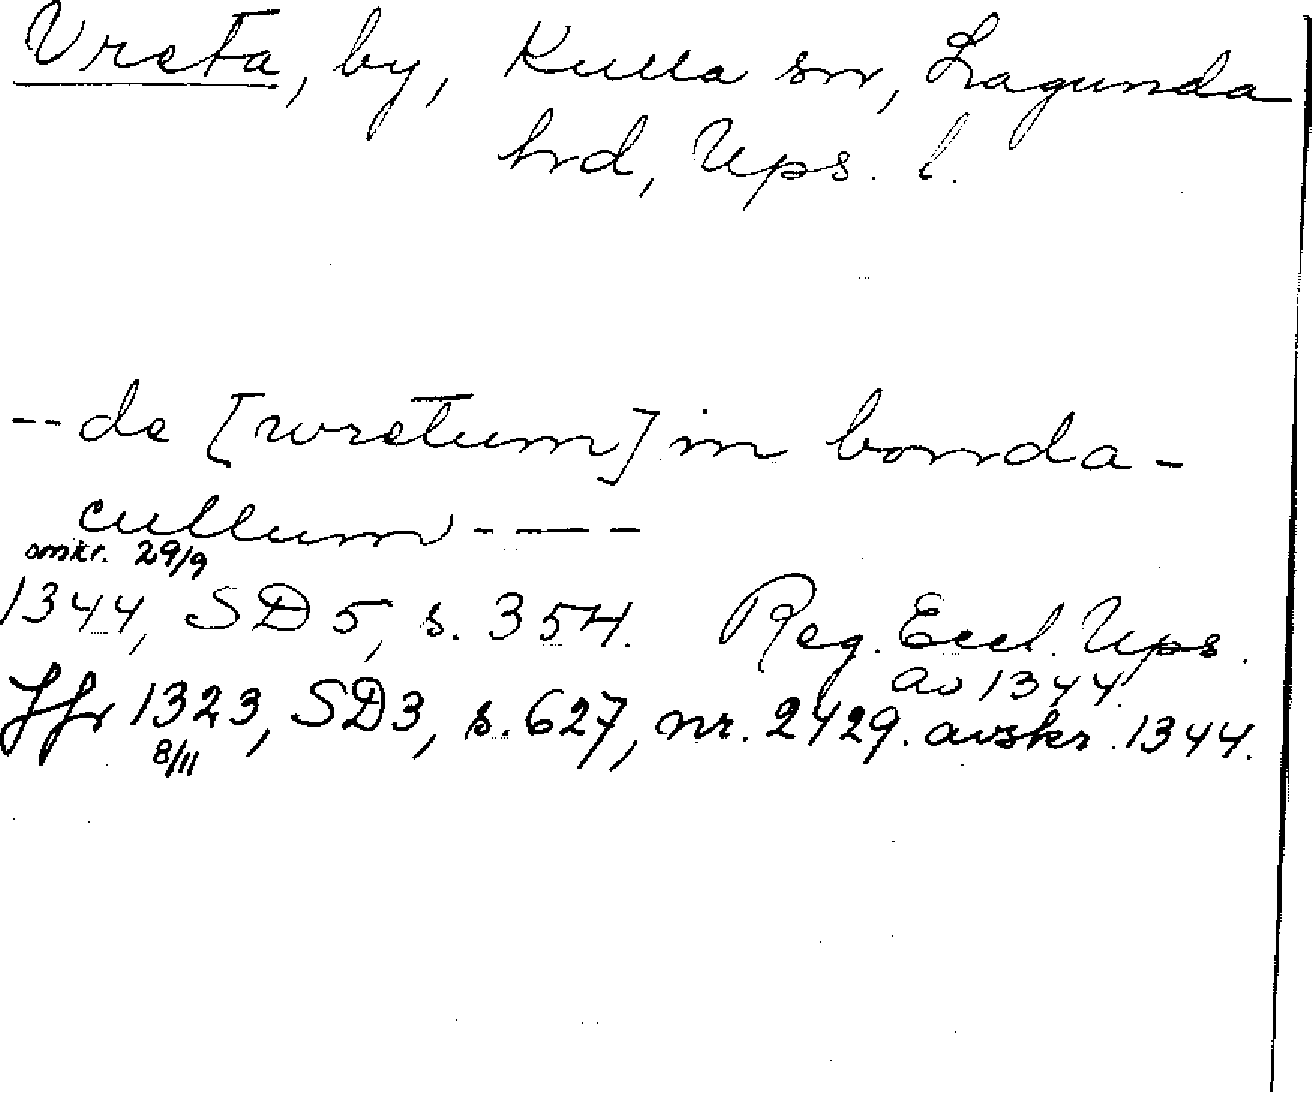 Vreta, by, Kulla sn, Lagunda
hrd, Ups. l.
-- de [wretum] in bonda-
cullum ----
omkr. 29/9
1344, SD 5, s. 354. Reg. Eccl. Ups.
av 1344.
Jfr 1323, SD3, s. 627, nr. 2429. avskr. 1344.
8/11